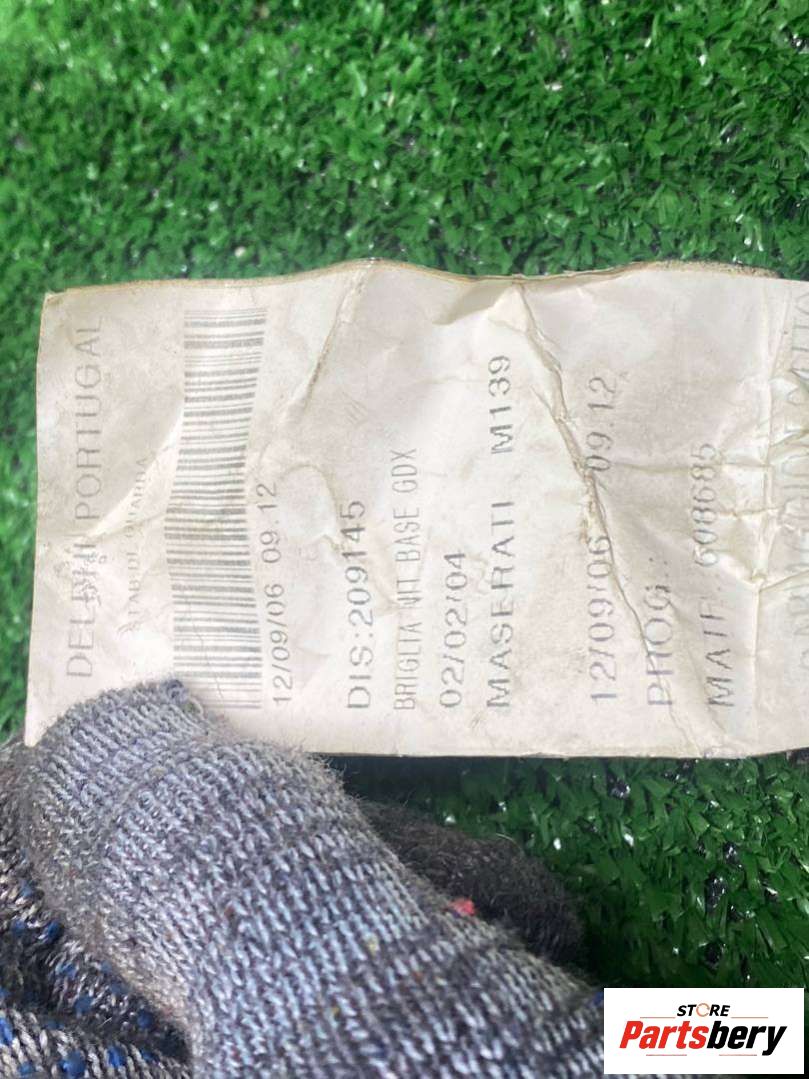 DELPHI PORTUGAL
12/09/06 09.12
DIS:209145
BRIGLIA NIT BASE GDX
02/02/04
MASERATI M139
12/09/06 09.12
PROG.:
MATF: 608685
STORE
Partsbery